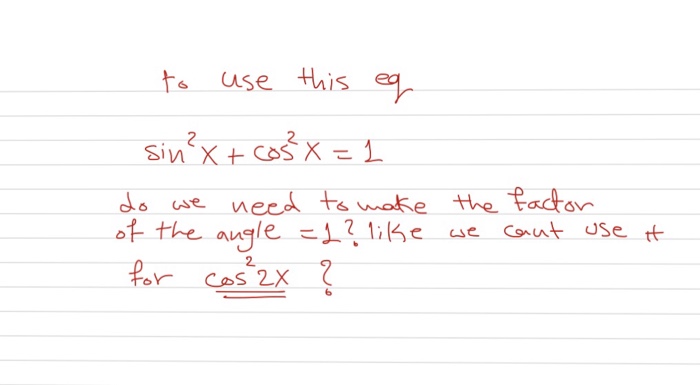 to use this eq
sin²x + cos²x = 1
do we need to make the factor
of the angle = 1? like we can't use it
for cos²2x ?